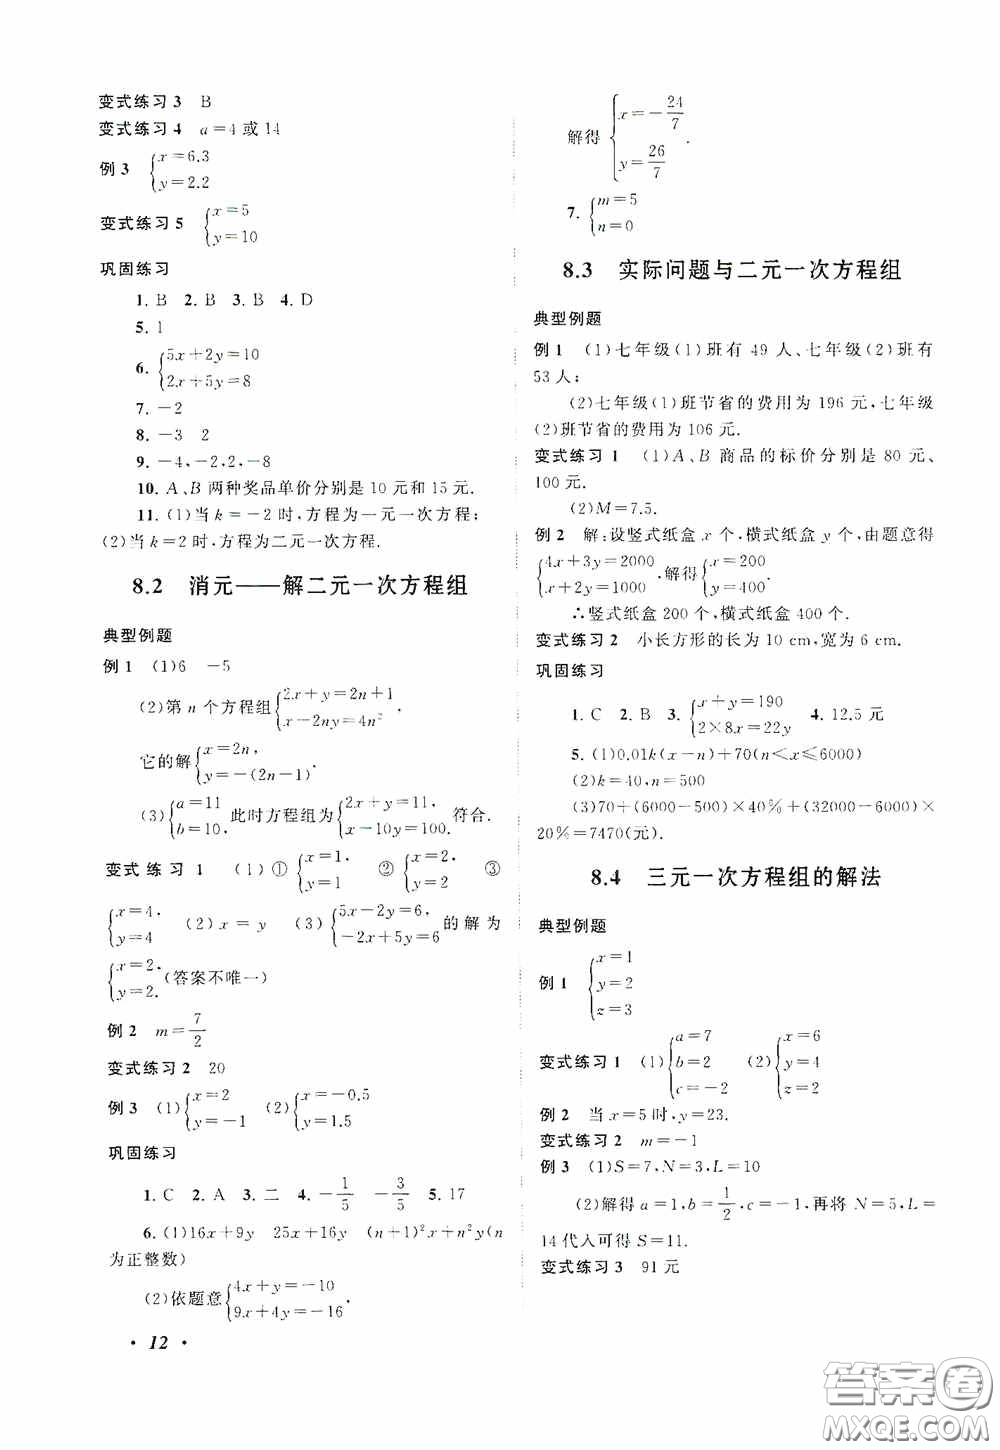 变式练习3 B
变式练习4 a=4或14
例3 {x=6.3
y=2.2
变式练习5 {x=5
y=10
巩固练习
1. B 2. B 3. B 4. D
5. 1
6. {5x+2y=10
2x+5y=8
7. －2
8. －3 2
9. －4,－2,2,－8
10. A、B两种奖品单价分别是10元和15元.
11. (1)当k=－2时,方程为一元一次方程;
(2)当k=2时,方程为二元一次方程.
8.2 消元——解二元一次方程组
典型例题
例1 (1)6 －5
(2)第n个方程组{2x+y=2n+1
x－2ny=4n².
它的解{x=2n,
y=－(2n－1).
(3){a=11
b=10, 此时方程组为{2x+y=11,
x－10y=100. 符合.
变式练习1 (1)①{x=1,
y=1 ②{x=2,
y=2 ③
{x=4,
y=4 (2)x=y (3){5x－2y=6,
－2x+5y=6 的解为
{x=2,
y=2. (答案不唯一)
例2 m=7/2
变式练习2 20
例3 (1){x=2
y=－1 (2){x=－0.5
y=1.5
巩固练习
1. C 2. A 3. 二 4. －1/5 －3/5 5. 17
6. (1)16x+9y 25x+16y (n+1)²x+n²y(n
为正整数)
(2)依题意{4x+y=－10
9x+4y=－16.
• 12 •
解得{x=－24/7
y=26/7.
7. {m=5
n=0
8.3 实际问题与二元一次方程组
典型例题
例1 (1)七年级(1)班有49人、七年级(2)班有
53人;
(2)七年级(1)班节省的费用为196元,七年级
(2)班节省的费用为106元.
变式练习1 (1)A、B商品的标价分别是80元、
100元.
(2)M=7.5.
例2 解:设竖式纸盒x个,横式纸盒y个,由题意得
{4x+3y=2000
x+2y=1000 .解得{x=200
y=400.
∴竖式纸盒200个,横式纸盒400个.
变式练习2 小长方形的长为10 cm,宽为6 cm.
巩固练习
1. C 2. B 3. {x+y=190
2×8x=22y 4. 12.5元
5. (1)0.01k(x－n)+70(n<x≤6000)
(2)k=40,n=500
(3)70+(6000－500)×40%+(32000－6000)×
20%=7470(元).
8.4 三元一次方程组的解法
典型例题
例1 {x=1
y=2
z=3
变式练习1 (1){a=7
b=2
c=－2 (2){x=6
y=4
z=2
例2 当x=5时,y=23.
变式练习2 m=－1
例3 (1)S=7,N=3,L=10
(2)解得a=1,b=1/2,c=－1,再将N=5,L=
14代入可得S=11.
变式练习3 91元
答案卷
MXQE.COM